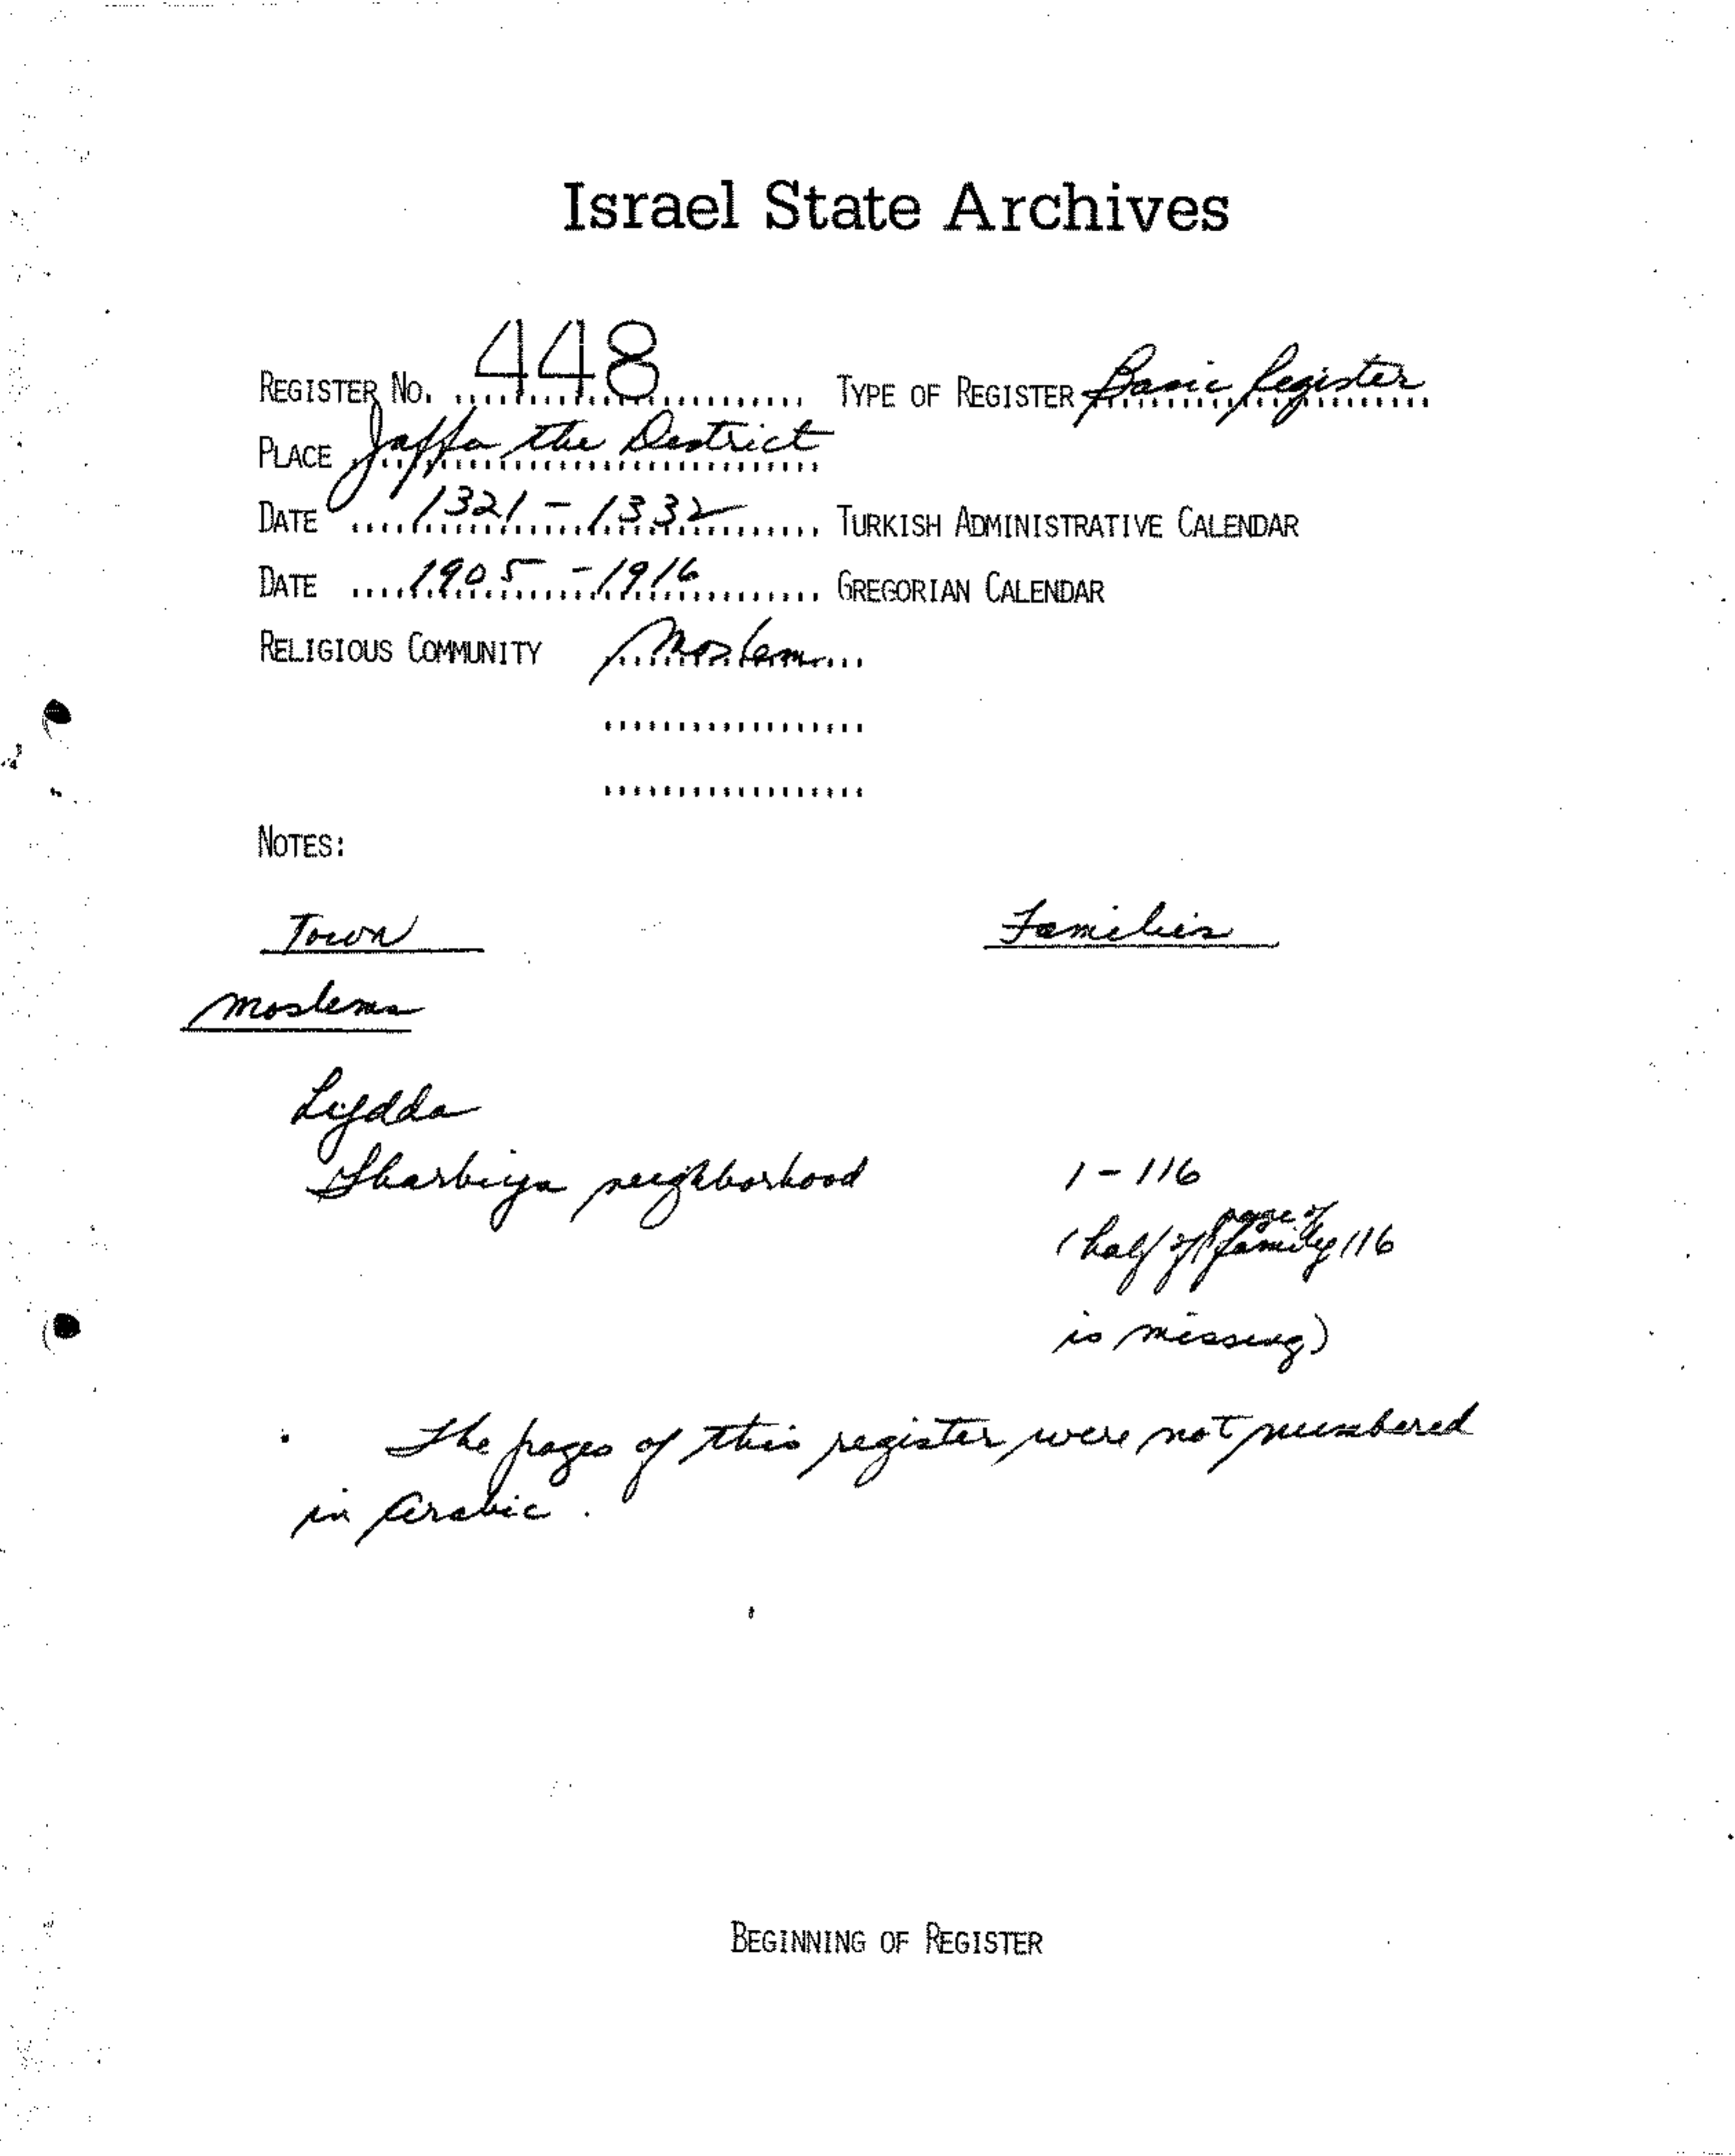 Israel State Archives
REGISTER NO. 448 TYPE OF REGISTER Basic Register
PLACE Jaffa the District
DATE 1321 - 1332 TURKISH ADMINISTRATIVE CALENDAR
DATE 1905 - 1916 GREGORIAN CALENDAR
RELIGIOUS COMMUNITY Moslem
NOTES:
Town Families
Moslems
Lydda
neighborhood 1 - 116
(half of page of family 116
is missing)
The pages of this register were not numbered
in Arabic.
BEGINNING OF REGISTER